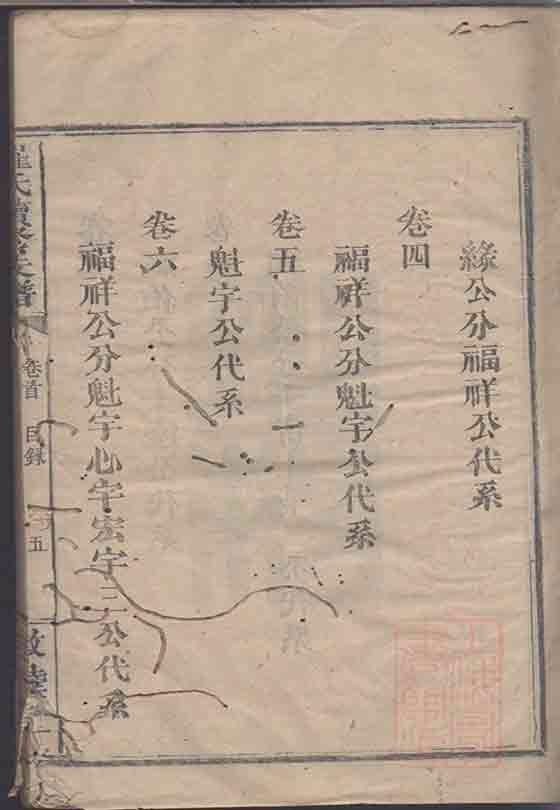 緣公分福祥公代系
卷四
福祥公分魁宇公代系
卷五
魁宇公代系
卷六
福祥公分魁宇心宇宏宇三公代系
氏續修支譜
卷首
目錄
五
敦睦